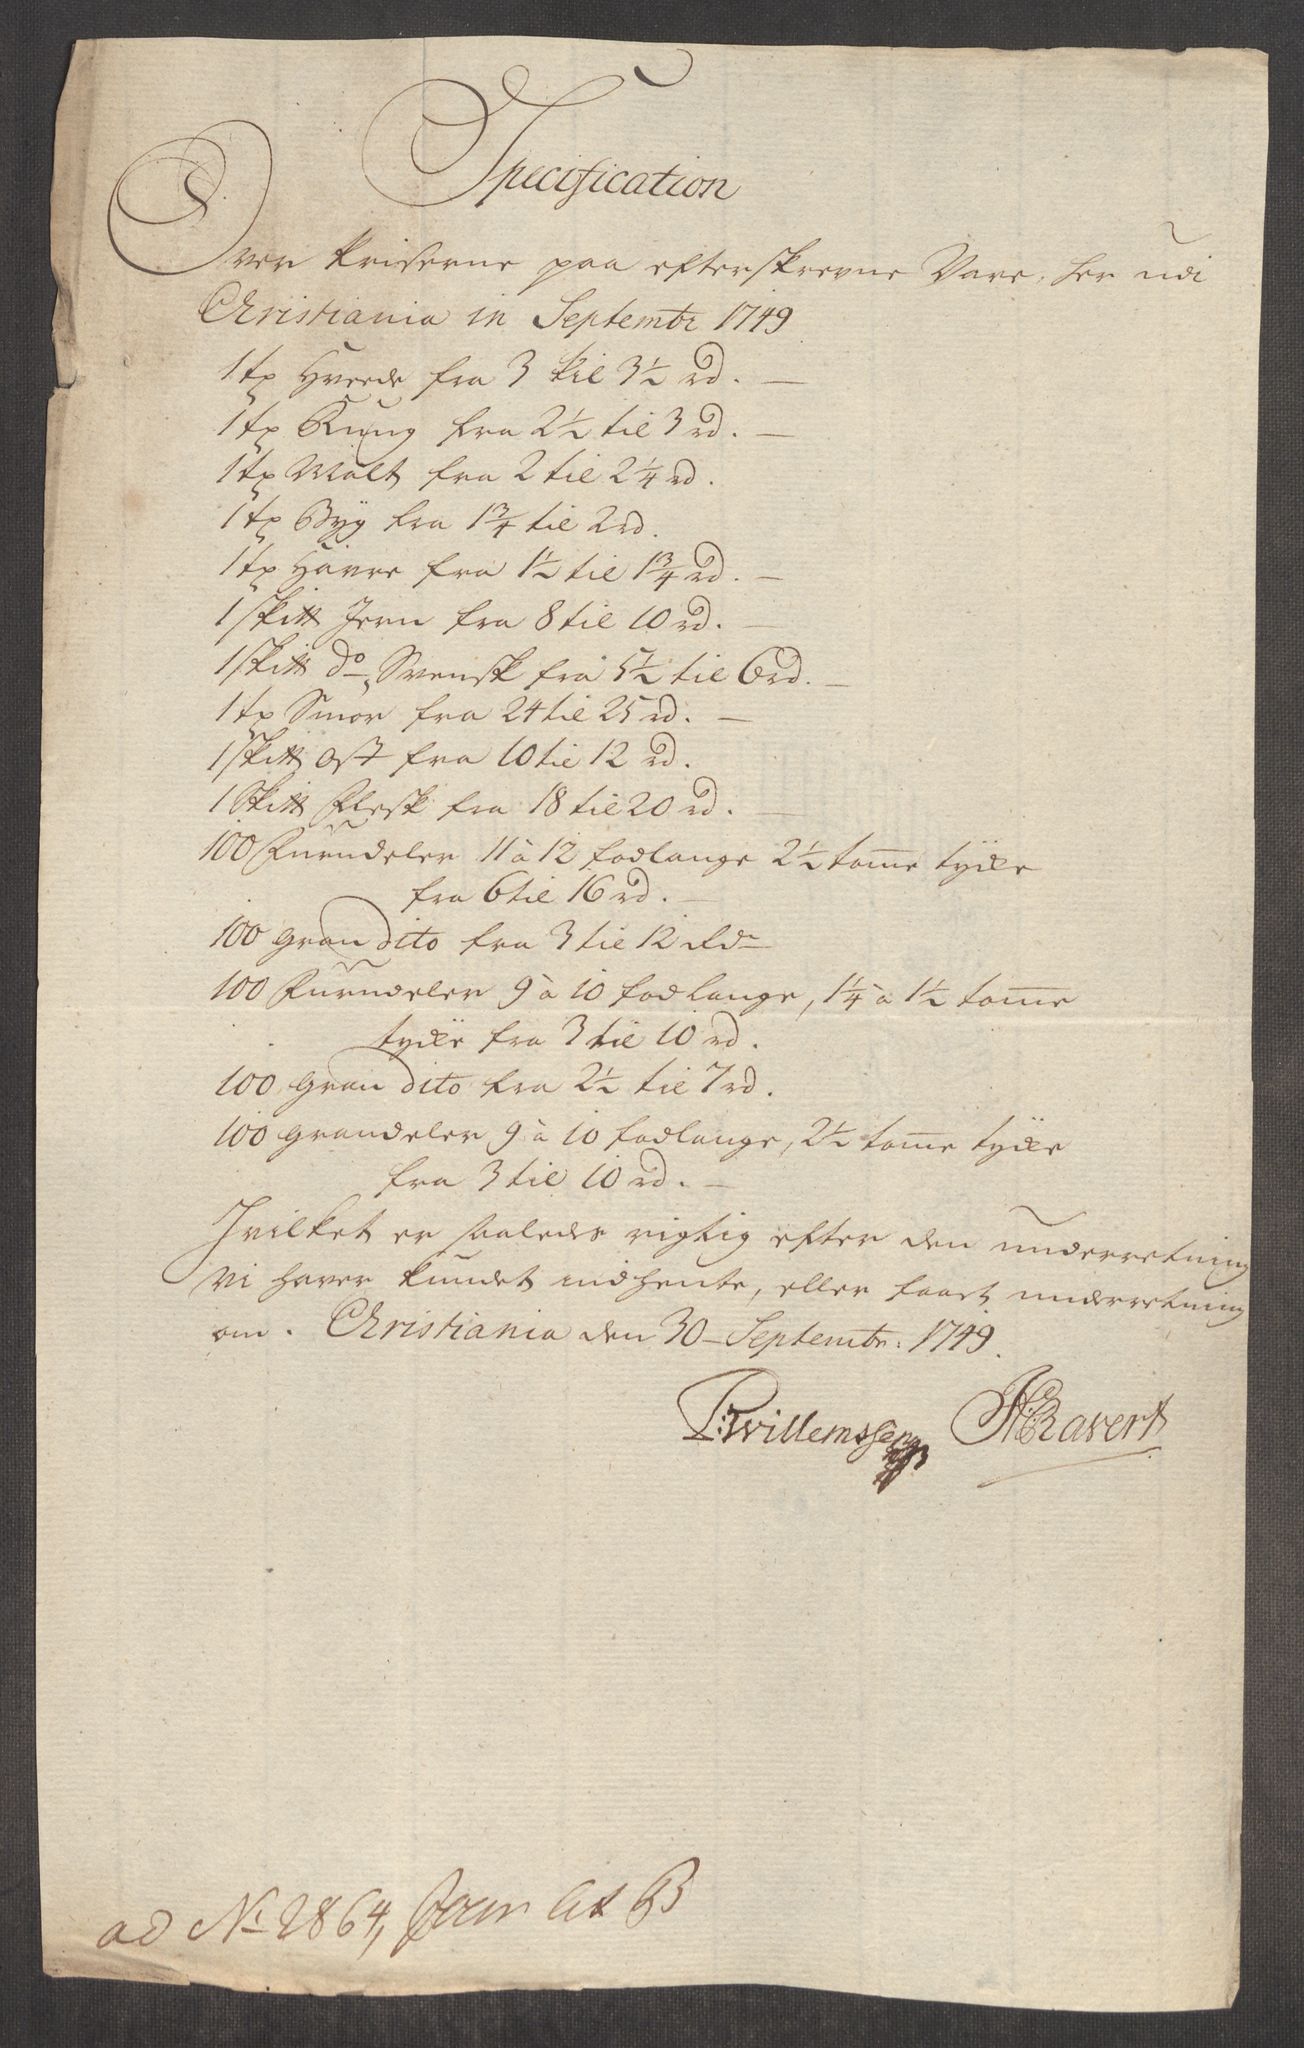 Specification
Over Priserne paa efterskrevne Vare, her udi
Christiania in Septembr 1749
1 tø Hveede fra 3 til 3½ rd. —
1 tø Rug fra 2½ til 3 rd. —
1 tø Malt fra 2 til 2¼ rd.
1 tø Byg fra 1¾ til 2 rd.
1 tø Havre fra 1½ til 1¾ rd. —
1 sk℔ Jern fra 8 til 10 rd. —
1 sk℔ do Svensk fra 5½ til 6 rd. —
1 tø Smør fra 24 til 25 rd. —
1 sk℔ Ost fra 10 til 12 rd.
1 Sk℔ Flesk fra 18 til 20 rd. —
100 Furudeler 11 à 12 fod lange 2½ tome tyike
fra 6 til 16 rd. —
100 gran dito fra 3 til 12 Rdr
100 Furudeler 9 à 10 fod lange, 1¼ à 1½ tome
tyike fra 3 til 10 rd.
100 gran dito fra 2½ til 7 rd.
100 grandeler 9 à 10 fod lange, 2½ tome tyike
fra 3 til 10 rd. —
Hvilket er saaledes rigtig efter den underretning
vi haver kundet indhente, eller faaet underretning
om. Christiania den 30 Septembr: 1749.
P: Willemssen HRavert
ad No 2864, Lit B